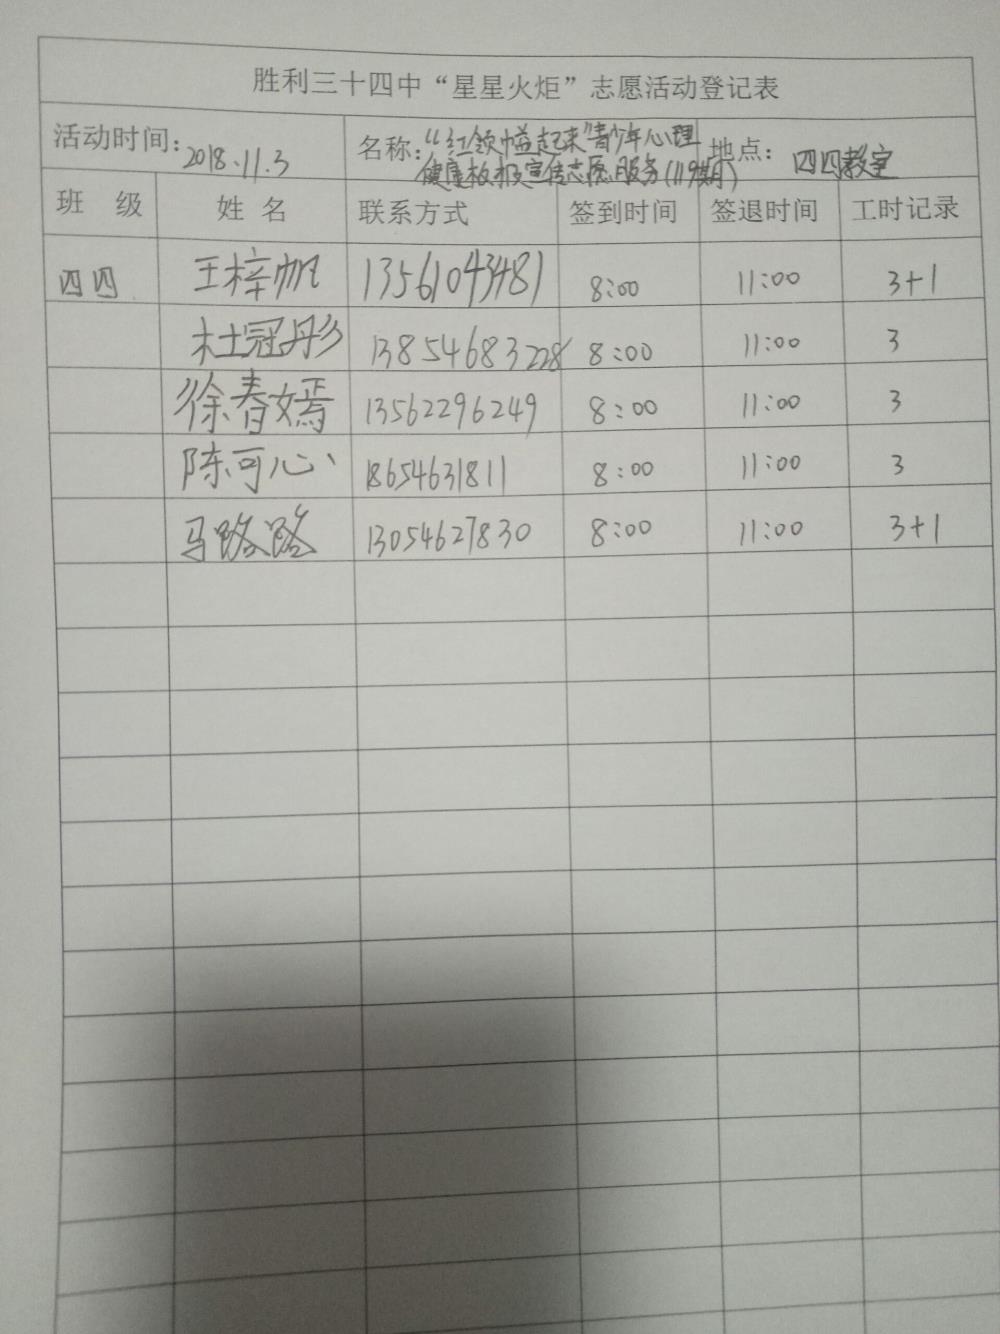 胜利三十四中“星星火炬”志愿活动登记表
活动时间：2018.11.3 名称：“红领巾益起来”青少年心理健康板报宣传志愿服务(119期) 地点：四四教室
班 级 姓 名 联系方式 签到时间 签退时间 工时记录
四四 王梓帆 13561043481 8:00 11:00 3+1
杜冠彤 13854683228 8:00 11:00 3
徐春嫣 13562296249 8:00 11:00 3
陈可心 18654631811 8:00 11:00 3
马路路 13054627830 8:00 11:00 3+1